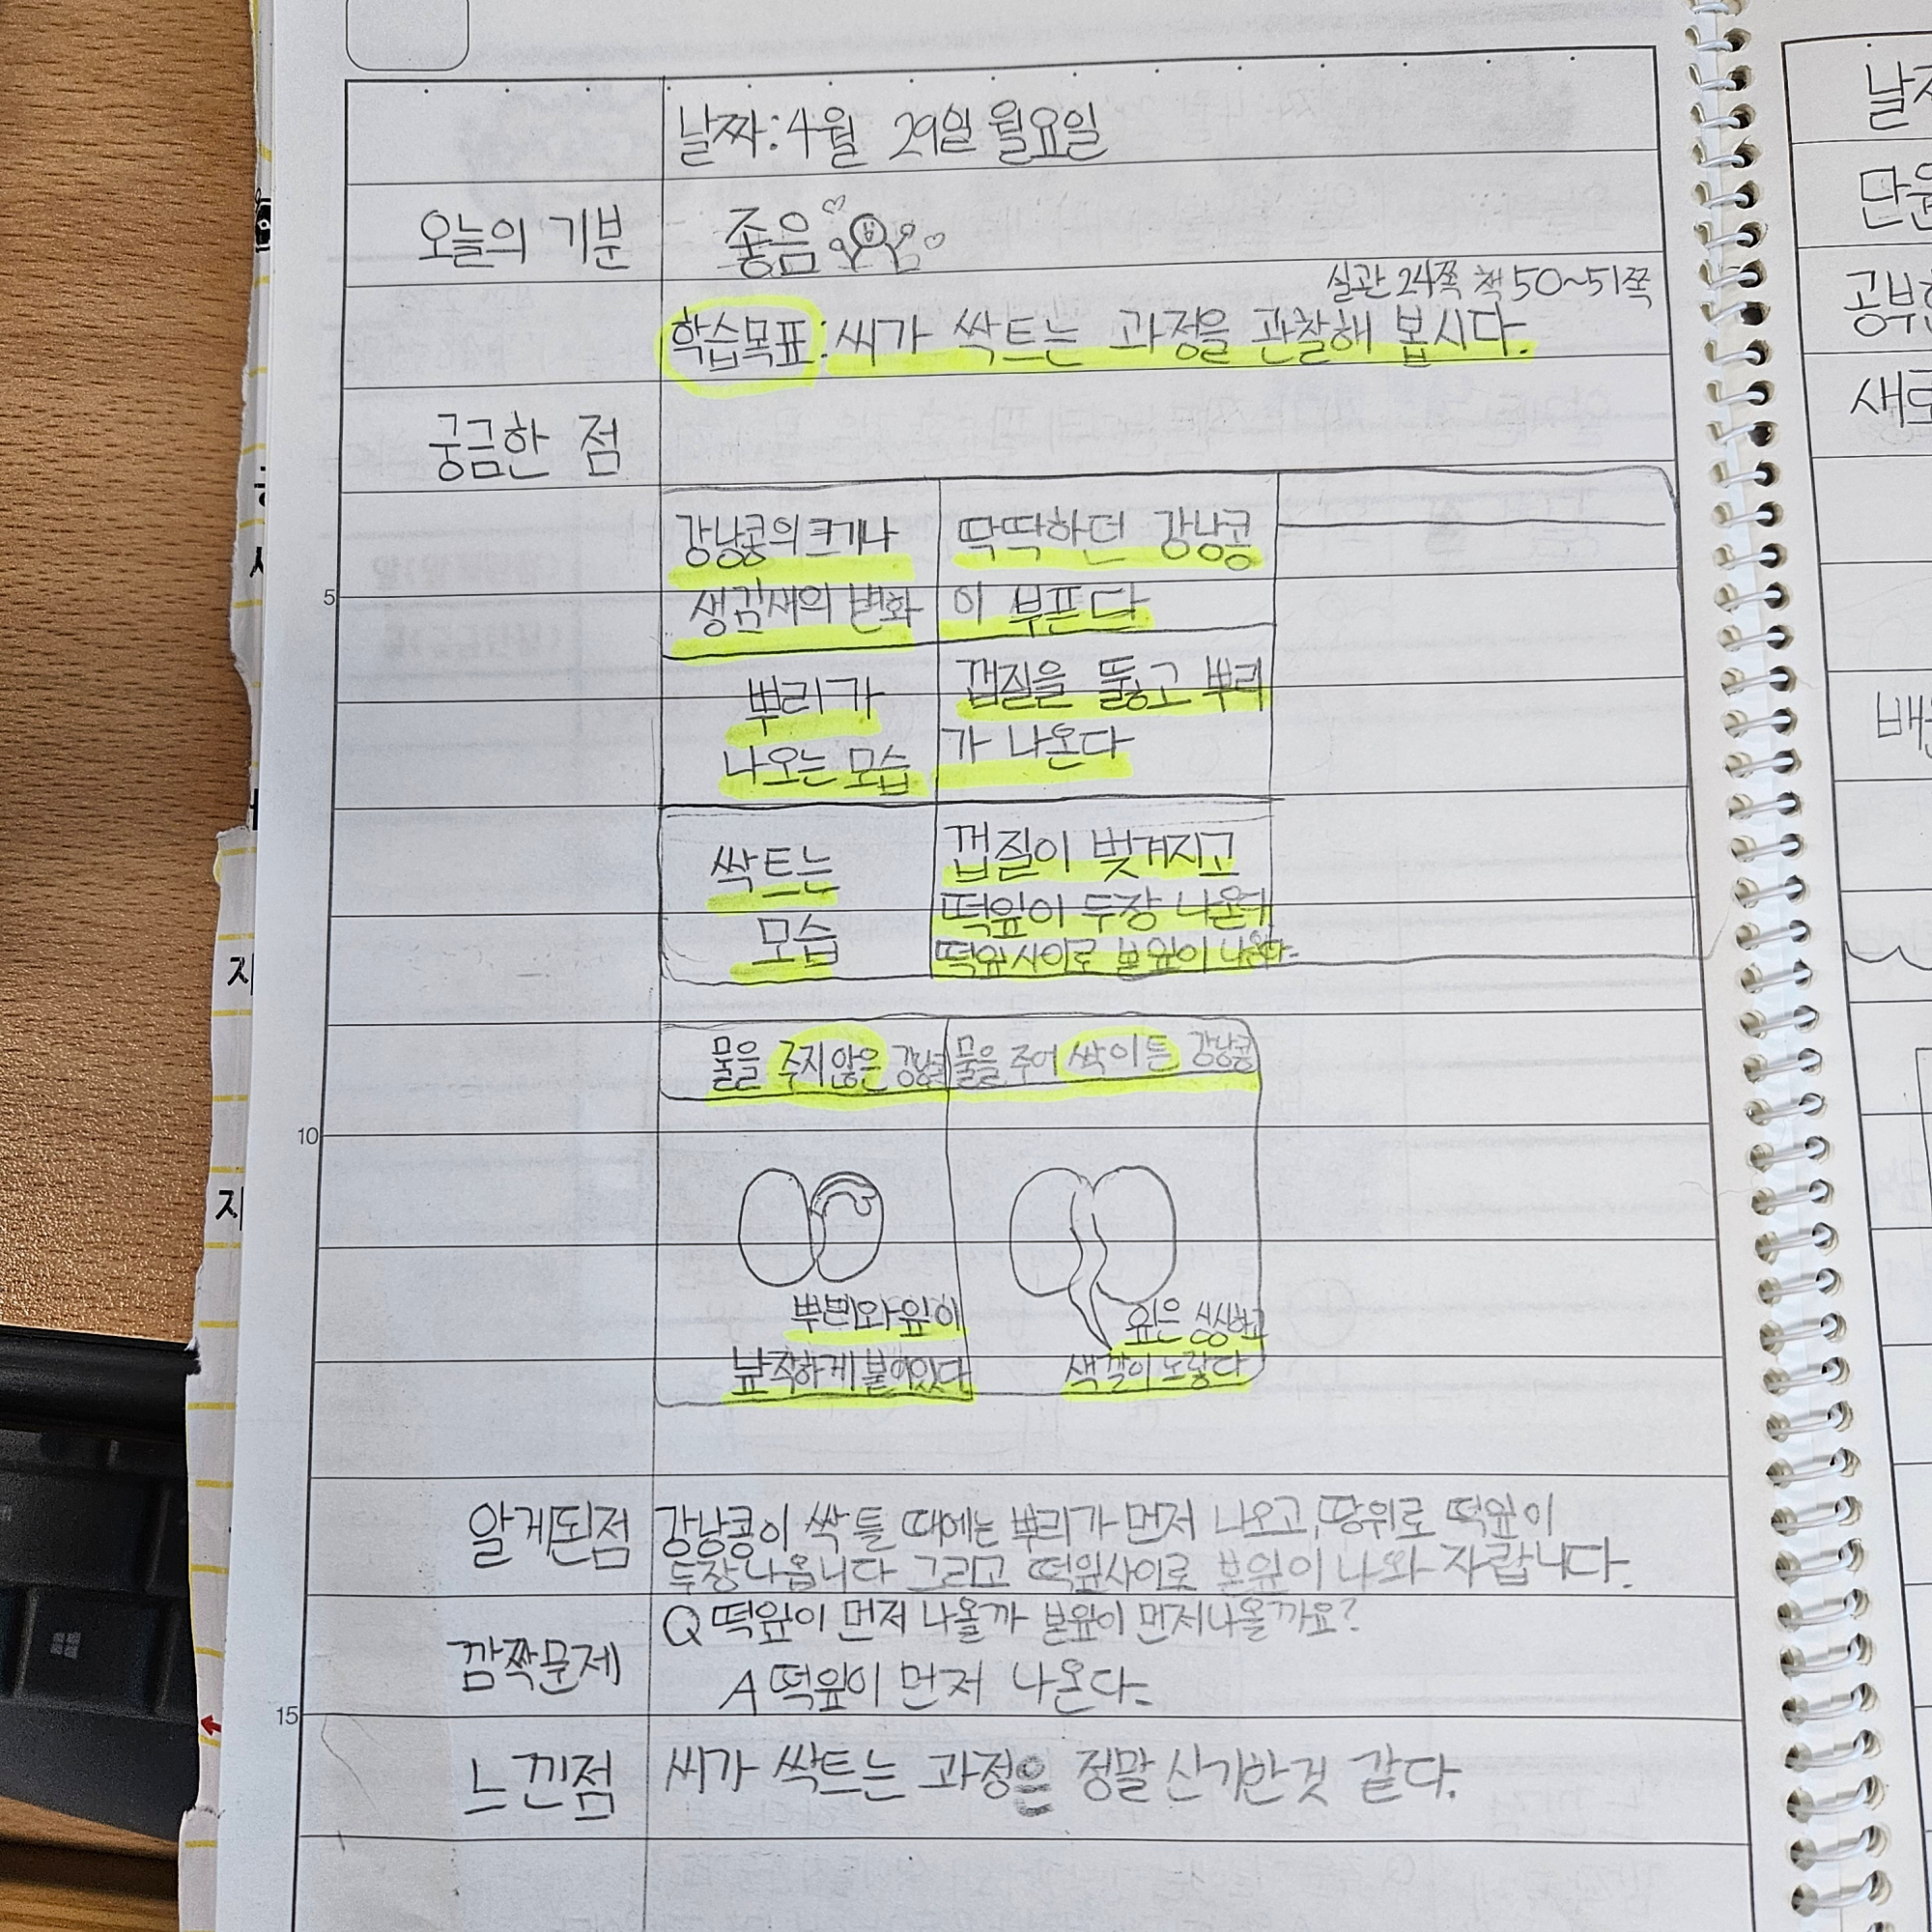 날짜:4월 29일 월요일
오늘의 기분 좋음
실관 24쪽 책 50~51쪽
학습목표: 씨가 싹트는 과정을 관찰해 봅시다.
궁금한 점
강낭콩의 크기나
생김새의 변화
딱딱하던 강낭콩
이 부푼다
뿌리가
나오는 모습
껍질을 뚫고 뿌리
가 나온다
싹트는
모습
껍질이 벗겨지고
떡잎이 두장 나온데
떡잎사이로 본잎이 나온다.
물을 주지않은 강낭콩
물을 주어 싹이튼 강낭콩
뿌리와 잎이
납작하게 붙어있다
잎은 싱싱하고
색깔이 노랗다
알게된점 강낭콩이 싹 틀 때에는 뿌리가 먼저 나오고, 땅위로 떡잎이
두장나옵니다 그리고 떡잎사이로 본잎이 나와 자랍니다.
깜짝문제
Q 떡잎이 먼저 나올까 본잎이 먼저나올까요?
A 떡잎이 먼저 나온다.
느낀점 씨가 싹트는 과정은 정말 신기한것 같다.
5
10
15
날
단
공부
새로
배
지
지